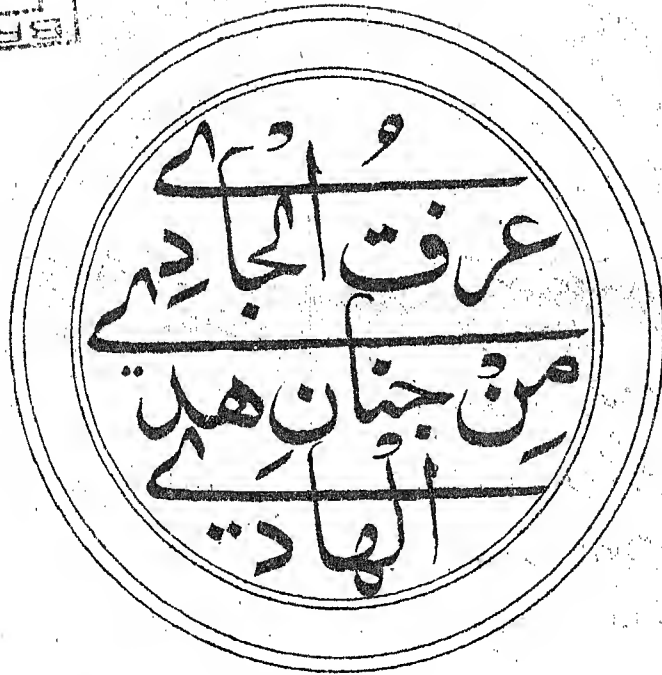 عرفُ الجْادِے
مِنْ جنانِ هدے
الهادے